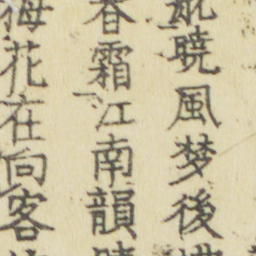 曉風梦後
春霜江南韻
梅花在向客